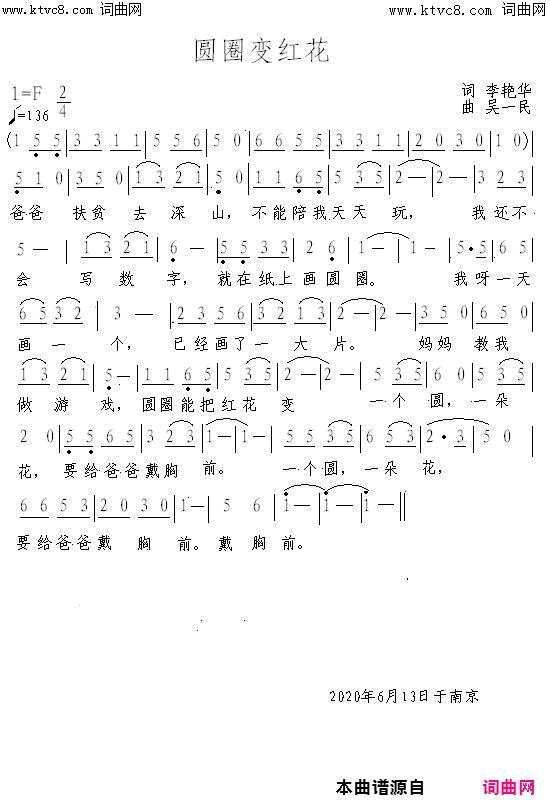 www.ktvc8.com 词曲网 www.ktvc8.com 词曲网
圆圈变红花
1=F 2/4
♩=136
词 李艳华
曲 吴一民
(1 5 5 | 3 3 1 1 | 5 5 6 | 5 0 | 6 6 5 5 | 3 3 1 1 | 2 0 3 0 | 1 0)
5 1 0 | 3 5 0 | 1 3 2 1 | 5 0 | 1 1 6 1 6 | 5 3 5 | 2 - | 2 - | 3 2 3
爸爸 扶贫 去 深 山, 不能陪我天天 玩, 我 还不
5 - | 1 3 2 1 | 6 - | 5 5 3 3 | 2 6 | 1 - | 1 - | 5 · 5 | 6 5
会 写 数 字, 就在纸上画圆 圈。 我呀一天
6 5 3 2 | 3 - | 2 3 5 6 | 3 2 1 3 | 2 - | 2 - | 3 5 0 | 6 5 0
画 一 个, 已经画了一 大 片。 妈妈 教我
1 3 2 1 | 5 - | 1 1 6 5 | 5 3 5 | 2 - | 2 - | 5 3 5 | 6 0 | 5 3 5
做 游 戏, 圆圈能把红花 变 一 个 圆, 一 朵
2 0 | 5 5 5 5 | 3 2 3 | 1 - | 1 - | 5 5 3 5 | 6 5 6 | 2 · 3 | 5 0
花, 要给爸爸戴胸 前。 一个圆, 一朵 花,
6 6 5 3 | 2 0 3 0 | 1 - | 5 6 | 1 - | 1 - | 1 - ||
要给爸爸戴 胸 前。戴 胸 前。
2020年6月13日于南京
本曲谱源自 词曲网